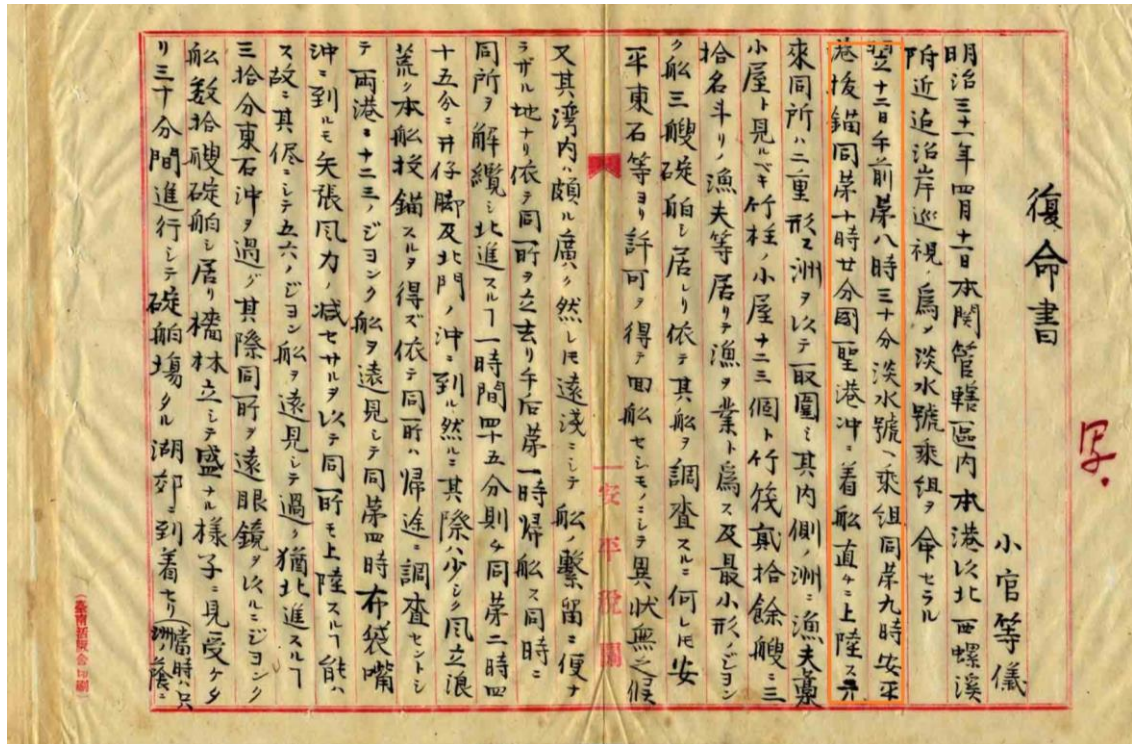 復命書
小官等儀
明治三十一年四月十一日本関管轄區内本港以北西螺溪
附近迄沿岸巡視ノ為メ淡水號乗組ヲ命セラル
翌十二日午前第八時三十分淡水號ヘ乗組同第九時安平
港抜錨同第十時廿分國聖港沖ニ着船直チニ上陸ス
來同所ハ二重形ニ洲ヲ以テ取圍ミ其内側ノ洲ニ漁夫藁
小屋ト見ルベキ竹柱ノ小屋十二三個ト竹筏貳拾餘艘ニ三
拾名斗リノ漁夫等居リテ漁ヲ業ト為ス及最小形ノジヨン
ク船三艘碇舶シ居レリ依テ其船ヲ調査スルニ何レモ安
平東石等ヨリ許可ヲ得テ回船セシモノニシテ異状無之候
又其湾内ハ頗ル廣ク然レモ遠淺ニシテ船ノ繋留ニ便ナ
ラザル地ナリ依テ同所ヲ立去リ午后第一時帰船ス同時ニ
同所ヲ解纜シ北進スルヿ一時間四十五分則チ同第二時四
十五分ニ井仔脚及北門ノ沖ニ到ル然ルニ其際ハ少シク風立浪
荒ク本船投錨スルヲ得ズ依テ同所ハ帰途ニ調査セントシ
テ両港ニ十二三ノジヨンク船ヲ遠見シテ同第四時布袋嘴
沖ニ到ルモ矢張風力ノ減セサルヲ以テ同所モ上陸スルヿ能ハ
ス故ニ其侭ニシテ五六ノジヨン船ヲ遠見シテ過ク猶北進スルヿ
三拾分東石沖ヲ過グ其際同所ヲ遠眼鏡ヲ以ルニジヨンク
船数拾艘碇舶シ居リ檣林立シテ盛ナル様子ニ見受ケタ
リ三十分間進行シテ碇舶場タル湖郊ニ到着セリ(當時ハ只洲ノ蔭ニ
写.
安平税関